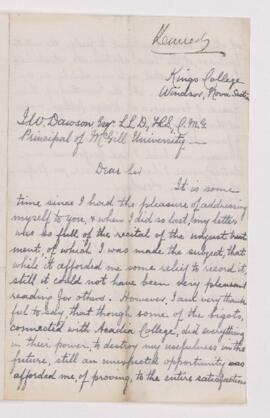 Kennedy
Kings College
Windsor, Nova Scotia
J. W. Dawson Esqr. LL.D., F.R.S., C.M.G.
Principal of McGill University
Dear Sir
It is some
time since I had the pleasure of addressing
myself to you, & when I did so last, my letter
was so full of the recital of the unjust treat
ment, of which I was made the subject, that
while it afforded me some relief to record it,
still it could not have been very pleasant
reading for others. However, I am very thank
ful to say, that though some of the bigots,
connected with Acadia College, did everything
in their power, to destroy my usefulness in the
future, still an unexpected opportunity was
afforded me, of proving, to the entire satisfaction